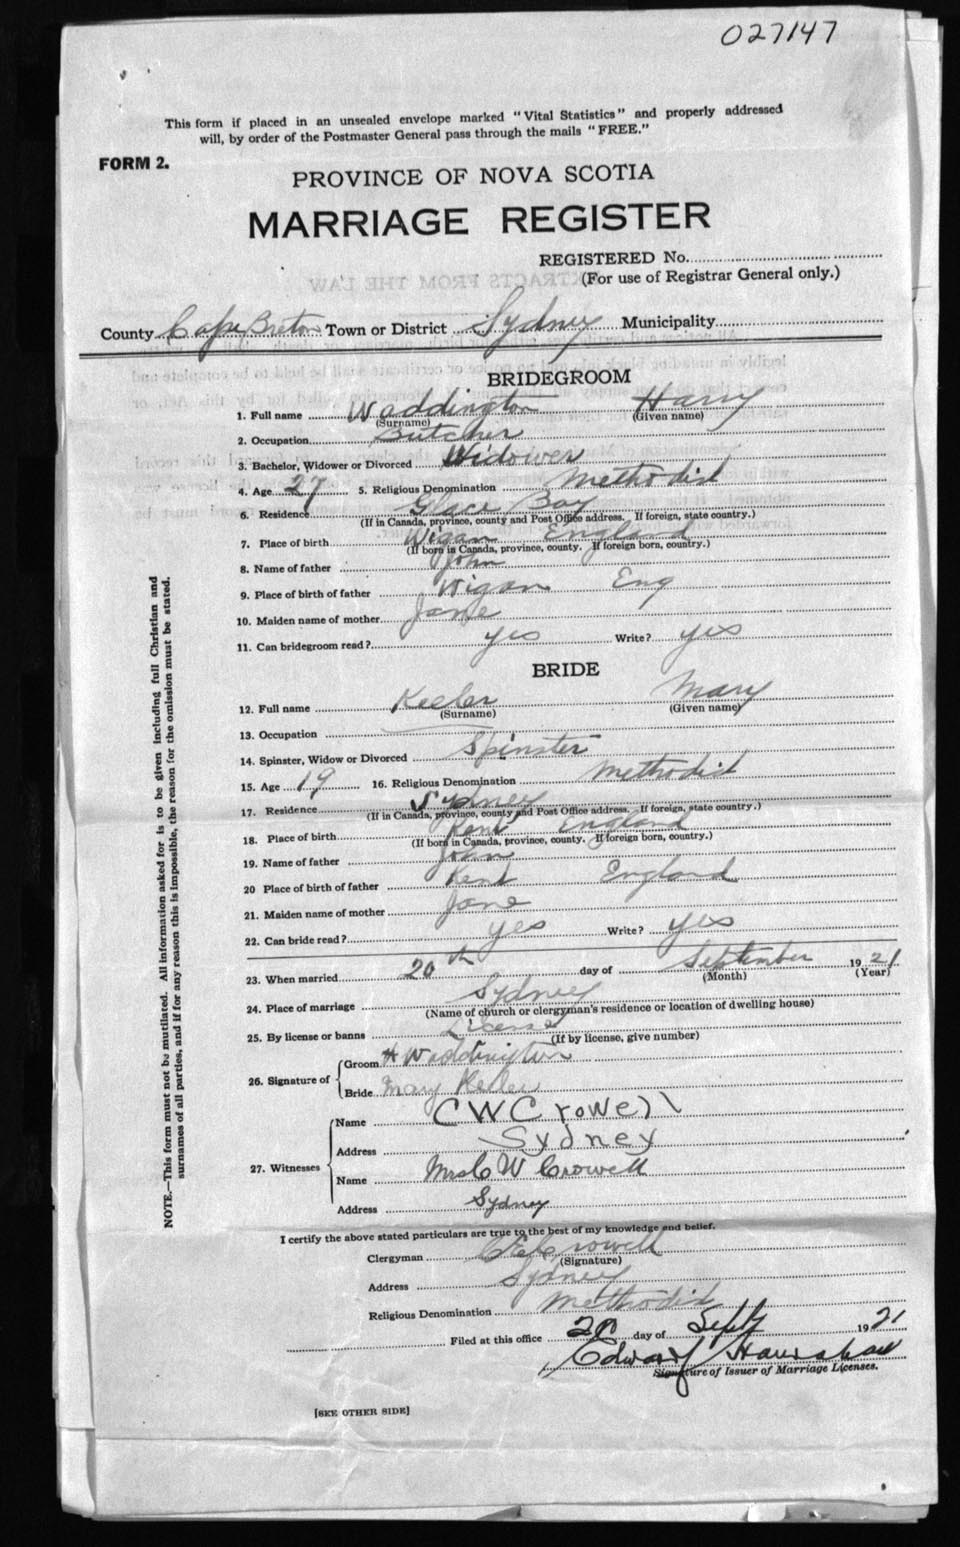 027147
This form if placed in an unsealed envelope marked "Vital Statistics" and properly addressed
will, by order of the Postmaster General pass through the mails "FREE."
FORM 2.
PROVINCE OF NOVA SCOTIA
MARRIAGE REGISTER
REGISTERED No.
(For use of Registrar General only.)
County Cape Breton Town or District Sydney Municipality
BRIDEGROOM
1. Full name Waddington Harry
(Surname) (Given name)
2. Occupation Butcher
3. Bachelor, Widower or Divorced Widower
4. Age 27 5. Religious Denomination Methodist
6. Residence Glace Bay
(If in Canada, province, county and Post Office address. If foreign, state country.)
7. Place of birth Wigan England
(If born in Canada, province, county. If foreign born, country.)
8. Name of father John
9. Place of birth of father Wigan Eng
10. Maiden name of mother Jane
11. Can bridegroom read? yes Write? yes
BRIDE
12. Full name Keeler Mary
(Surname) (Given name)
13. Occupation
14. Spinster, Widow or Divorced Spinster
15. Age 19 16. Religious Denomination Methodist
17. Residence Sydney
(If in Canada, province, county and Post Office address. If foreign, state country.)
18. Place of birth Kent England
(If born in Canada, province, county. If foreign born, country.)
19. Name of father John
20 Place of birth of father Kent England
21. Maiden name of mother Jane
22. Can bride read? yes Write? yes
23. When married 20th day of September 1921
(Month) (Year)
24. Place of marriage Sydney
(Name of church or clergyman's residence or location of dwelling house)
25. By license or banns License
(If by license, give number)
26. Signature of
Groom H Waddington
Bride Mary Keeler
27. Witnesses
Name C W Crowell
Address Sydney
Name Mrs C W Crowell
Address Sydney
I certify the above stated particulars are true to the best of my knowledge and belief.
Clergyman Crowell
(Signature)
Address Sydney
Religious Denomination Methodist
Filed at this office 20 day of Sept 1921
Edward
Signature of Issuer of Marriage Licenses.
[SEE OTHER SIDE]
NOTE.—This form must not be mutilated. All information asked for is to be given including full Christian and
surnames of all parties, and if for any reason this is impossible, the reason for the omission must be stated.